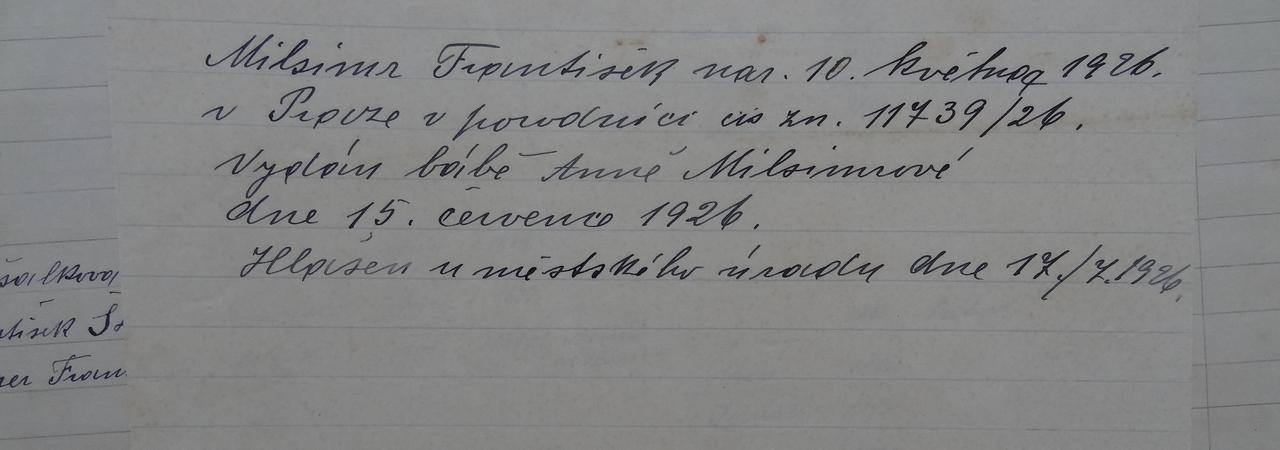 Milsimr František nar. 10. května 1926.
v Praze v porodnici čís zn. 11739/26.
Vydán bábě Anně Milsimrové
dne 15. července 1926.
Hlášen u městského úřadu dne 17./7.1926.
šalkova
ntišek Š
Fran